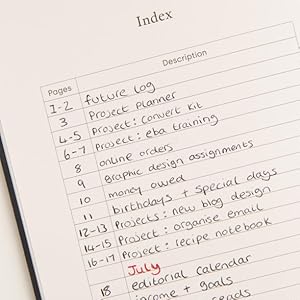 Index
Pages Description
1-2 future log
3 Project Planner
4-5 Project: Convert Kit
6-7 Project: eba training
8 online orders
9 graphic design assignments
10 money owed
11 birthdays + special days
12-13 Projects: new blog design
14-15 Project: organise email
16-17 Project: recipe notebook
July
18 editorial calendar
income + goals